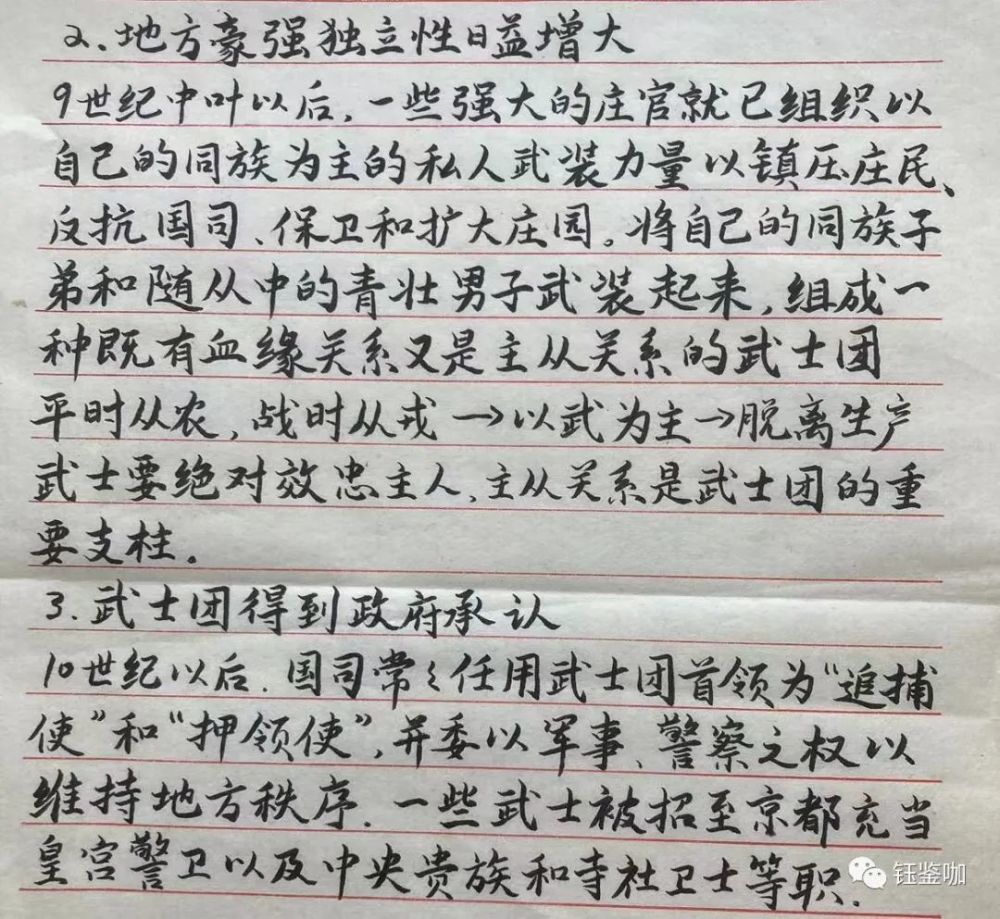 2、地方豪强独立性日益增大
9世纪中叶以后，一些强大的庄官就已组织以
自己的同族为主的私人武装力量以镇压庄民、
反抗国司、保卫和扩大庄园。将自己的同族子
弟和随从中的青壮男子武装起来，组成一
种既有血缘关系又是主从关系的武士团
平时从农，战时从戎→以武为主→脱离生产
武士要绝对效忠主人、主从关系是武士团的重
要支柱。
3.武士团得到政府承认
10世纪以后．国司常々任用武士团首领为“追捕
使”和“押领使”，并委以军事、警察之权以
维持地方秩序．一些武士被招至京都充当
皇宫警卫以及中央贵族和寺社卫士等职．
钰鉴咖